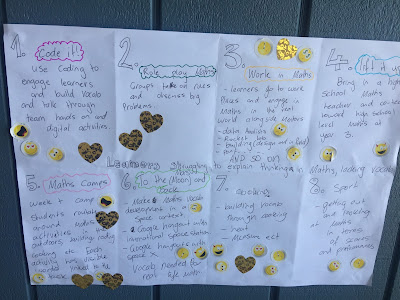 1.
Code it!
Use Coding to
engage learners
and build Vocab
and talk through
team hands on and
digital activities.
2.
Role play
Groups take on roles
and discuss big
Problems.
3.
Work in Maths
- learners go to work
Places and engage in
Maths in the real
world alongside mentors
- data Analysis
- Rocket lab
- building (design and a build)
AND SO ON
4.
lift it up
Bring in a high
School Maths
teacher and co-teach
toward high school
level Maths at
year 3.
Learners struggling to explain thinking in Maths, lacking vocab
5.
Maths Camps
Week + camp
Students rotate
around Maths
activities
outdoors, building
cooking etc. Each
activity has
6.
To the Moon and
back
- Make Maths Vocab
development in a
Space context
- Google hangout with
international space station
- Google hangouts with
space
Vocab needed for
real life math
7.
Cooking
- building vocab
through cooking
- heat
- Measure ect
8. Sport
- Getting out
and looking
at Maths
in terms
of scoring
and performances